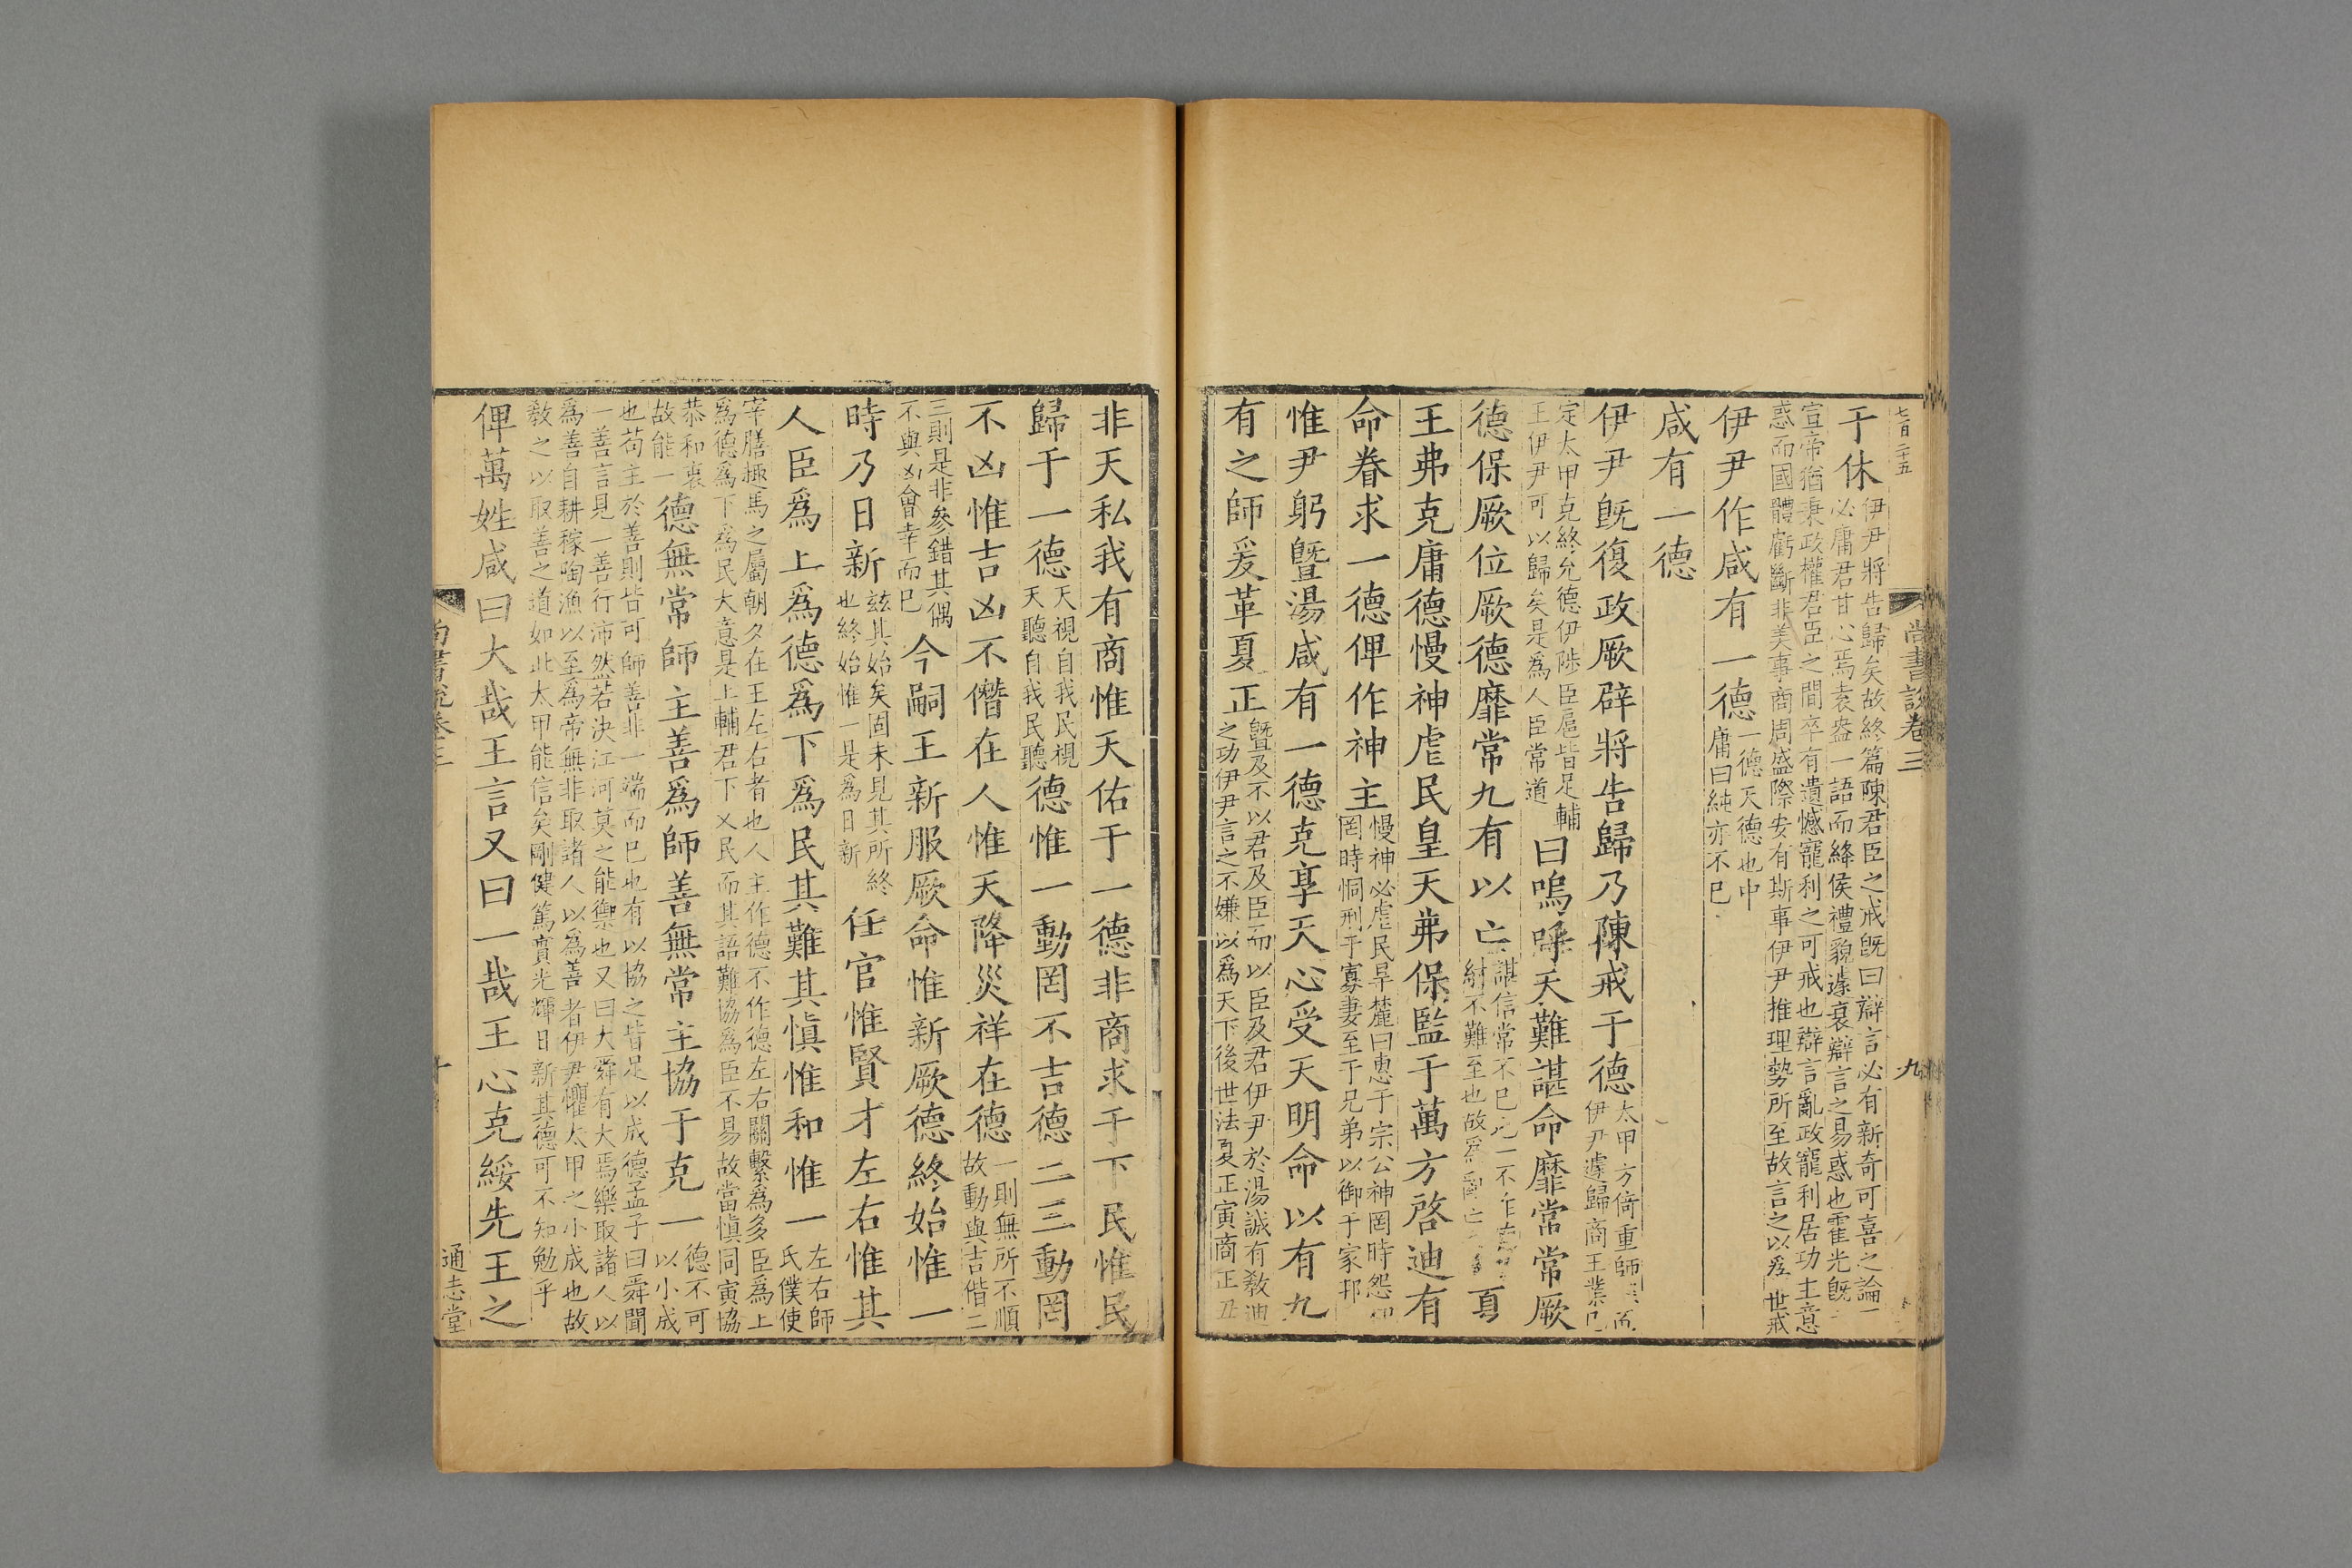 七百二十五
尚書說卷三
九
于休伊尹將告歸矣故終篇陳君臣之戒旣曰辯言必有新奇可喜之論
必庸君甘心焉袁盎一語而絳侯禮貌遽衰辯言之易惑也霍光旣
宣帝猶秉政權君臣之間卒有遺憾寵利之可戒也辯言亂政寵利居功主意
惑而國體虧斷非美事商周盛際安有斯事伊尹推理勢所至故言之以爲世戒
伊尹作咸有一德一德天德也中
庸曰純亦不已
咸有一德
伊尹旣復政厥辟將告歸乃陳戒于德太甲方倚重師
伊尹遽歸商王業已
定太甲克終允德伊陟臣扈皆足輔
王伊尹可以歸矣是爲人臣常道曰嗚呼天難諶命靡常常厥
德保厥位厥德靡常九有以亡諶信常不已
紂不難至也故爲
夏
王弗克庸德慢神虐民皇天弗保監于萬方啓迪有
命眷求一德俾作神主慢神必虐民旱麓曰惠于宗公神罔時怨
罔時恫刑于寡妻至于兄弟以御于家邦
惟尹躬曁湯咸有一德克享天心受天明命以有九
有之師爰革夏正曁及不以君及臣而以臣及君伊尹於湯誠有敎迪
之功伊尹言之不嫌以爲天下後世法夏正寅商正丑
非天私我有商惟天佑于一德非商求于下民惟民
歸于一德天視自我民視
天聽自我民聽德惟一動罔不吉德二三動罔
不凶惟吉凶不僭在人惟天降災祥在德一則無所不順
故動與吉偕二
三則是非參錯其偶
不與凶會幸而已今嗣王新服厥命惟新厥德終始惟一
時乃日新玆其始矣固未見其所終
也終始惟一是爲日新任官惟賢才左右惟其
人臣爲上爲德爲下爲民其難其愼惟和惟一左右師
氏僕使
宰膳趣馬之屬朝夕在王左右者也人主作德不作德左右關繫爲多臣爲上
爲德爲下爲民大意是上輔君下乂民而其語難協爲臣不易故當愼同寅協
恭和衷
故能一德無常師主善爲師善無常主協于克一德不可
以小成
也苟主於善則皆可師善非一端而已也有以協之皆足以成德孟子曰舜聞
一善言見一善行沛然若決江河莫之能禦也又曰大舜有大焉樂取諸人以
爲善自耕稼陶漁以至爲帝無非取諸人以爲善者伊尹懼太甲之小成也故
敎之以取善之道如此太甲能信矣剛健篤實光輝日新其德可不知勉乎
俾萬姓咸曰大哉王言又曰一哉王心克綏先王之
尚書說卷三
十
通志堂